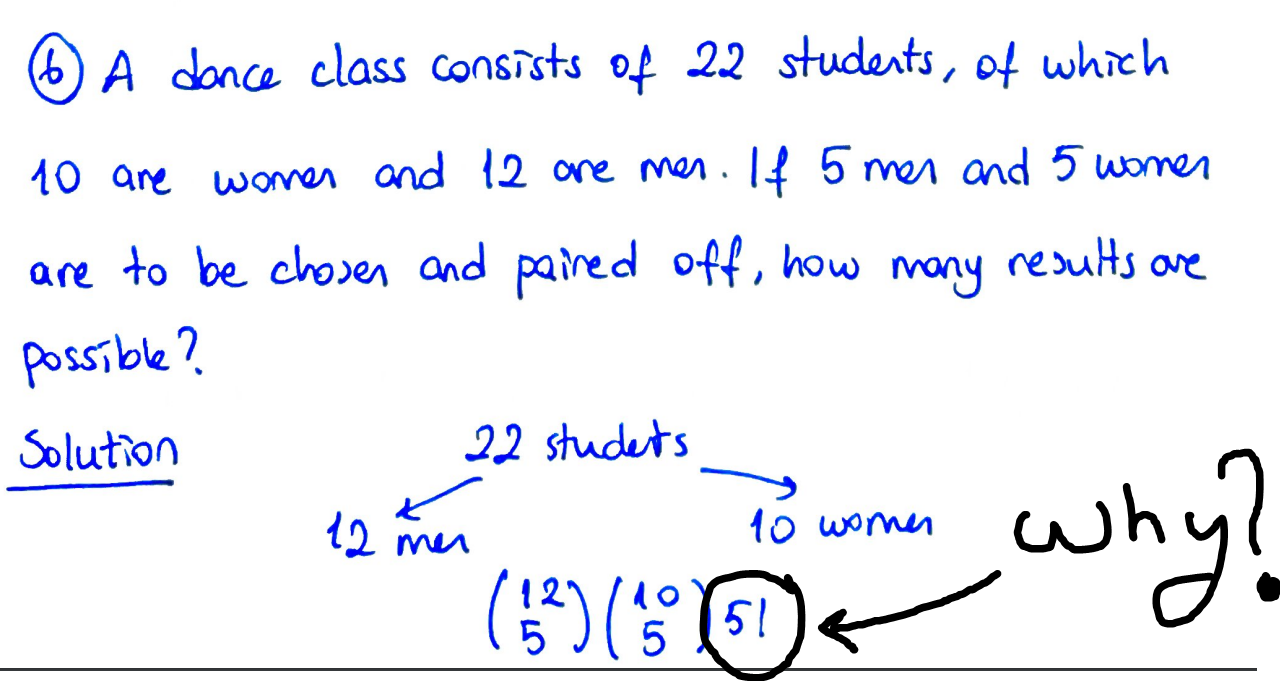 6 A dance class consists of 22 students, of which
10 are women and 12 are men. If 5 men and 5 women
are to be chosen and paired off, how many results are
possible?
Solution
22 students
12 men
10 women
why?
(12 5)(10 5) 5!